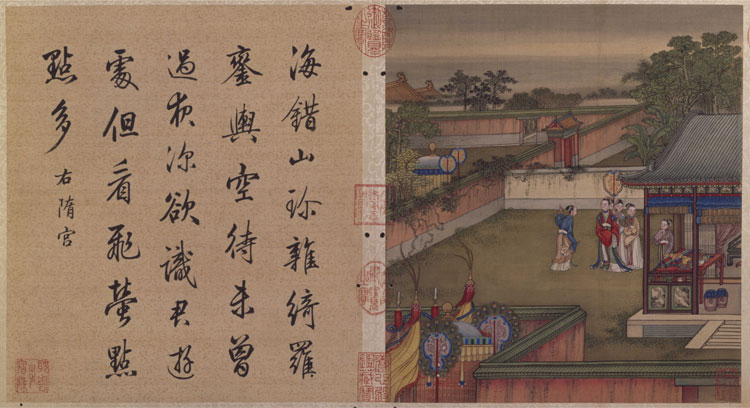 海錯山珎雜綺羅
鑾輿空待未曾
過夜深欲識君遊
處但看飛螢點
點多
右隋宮